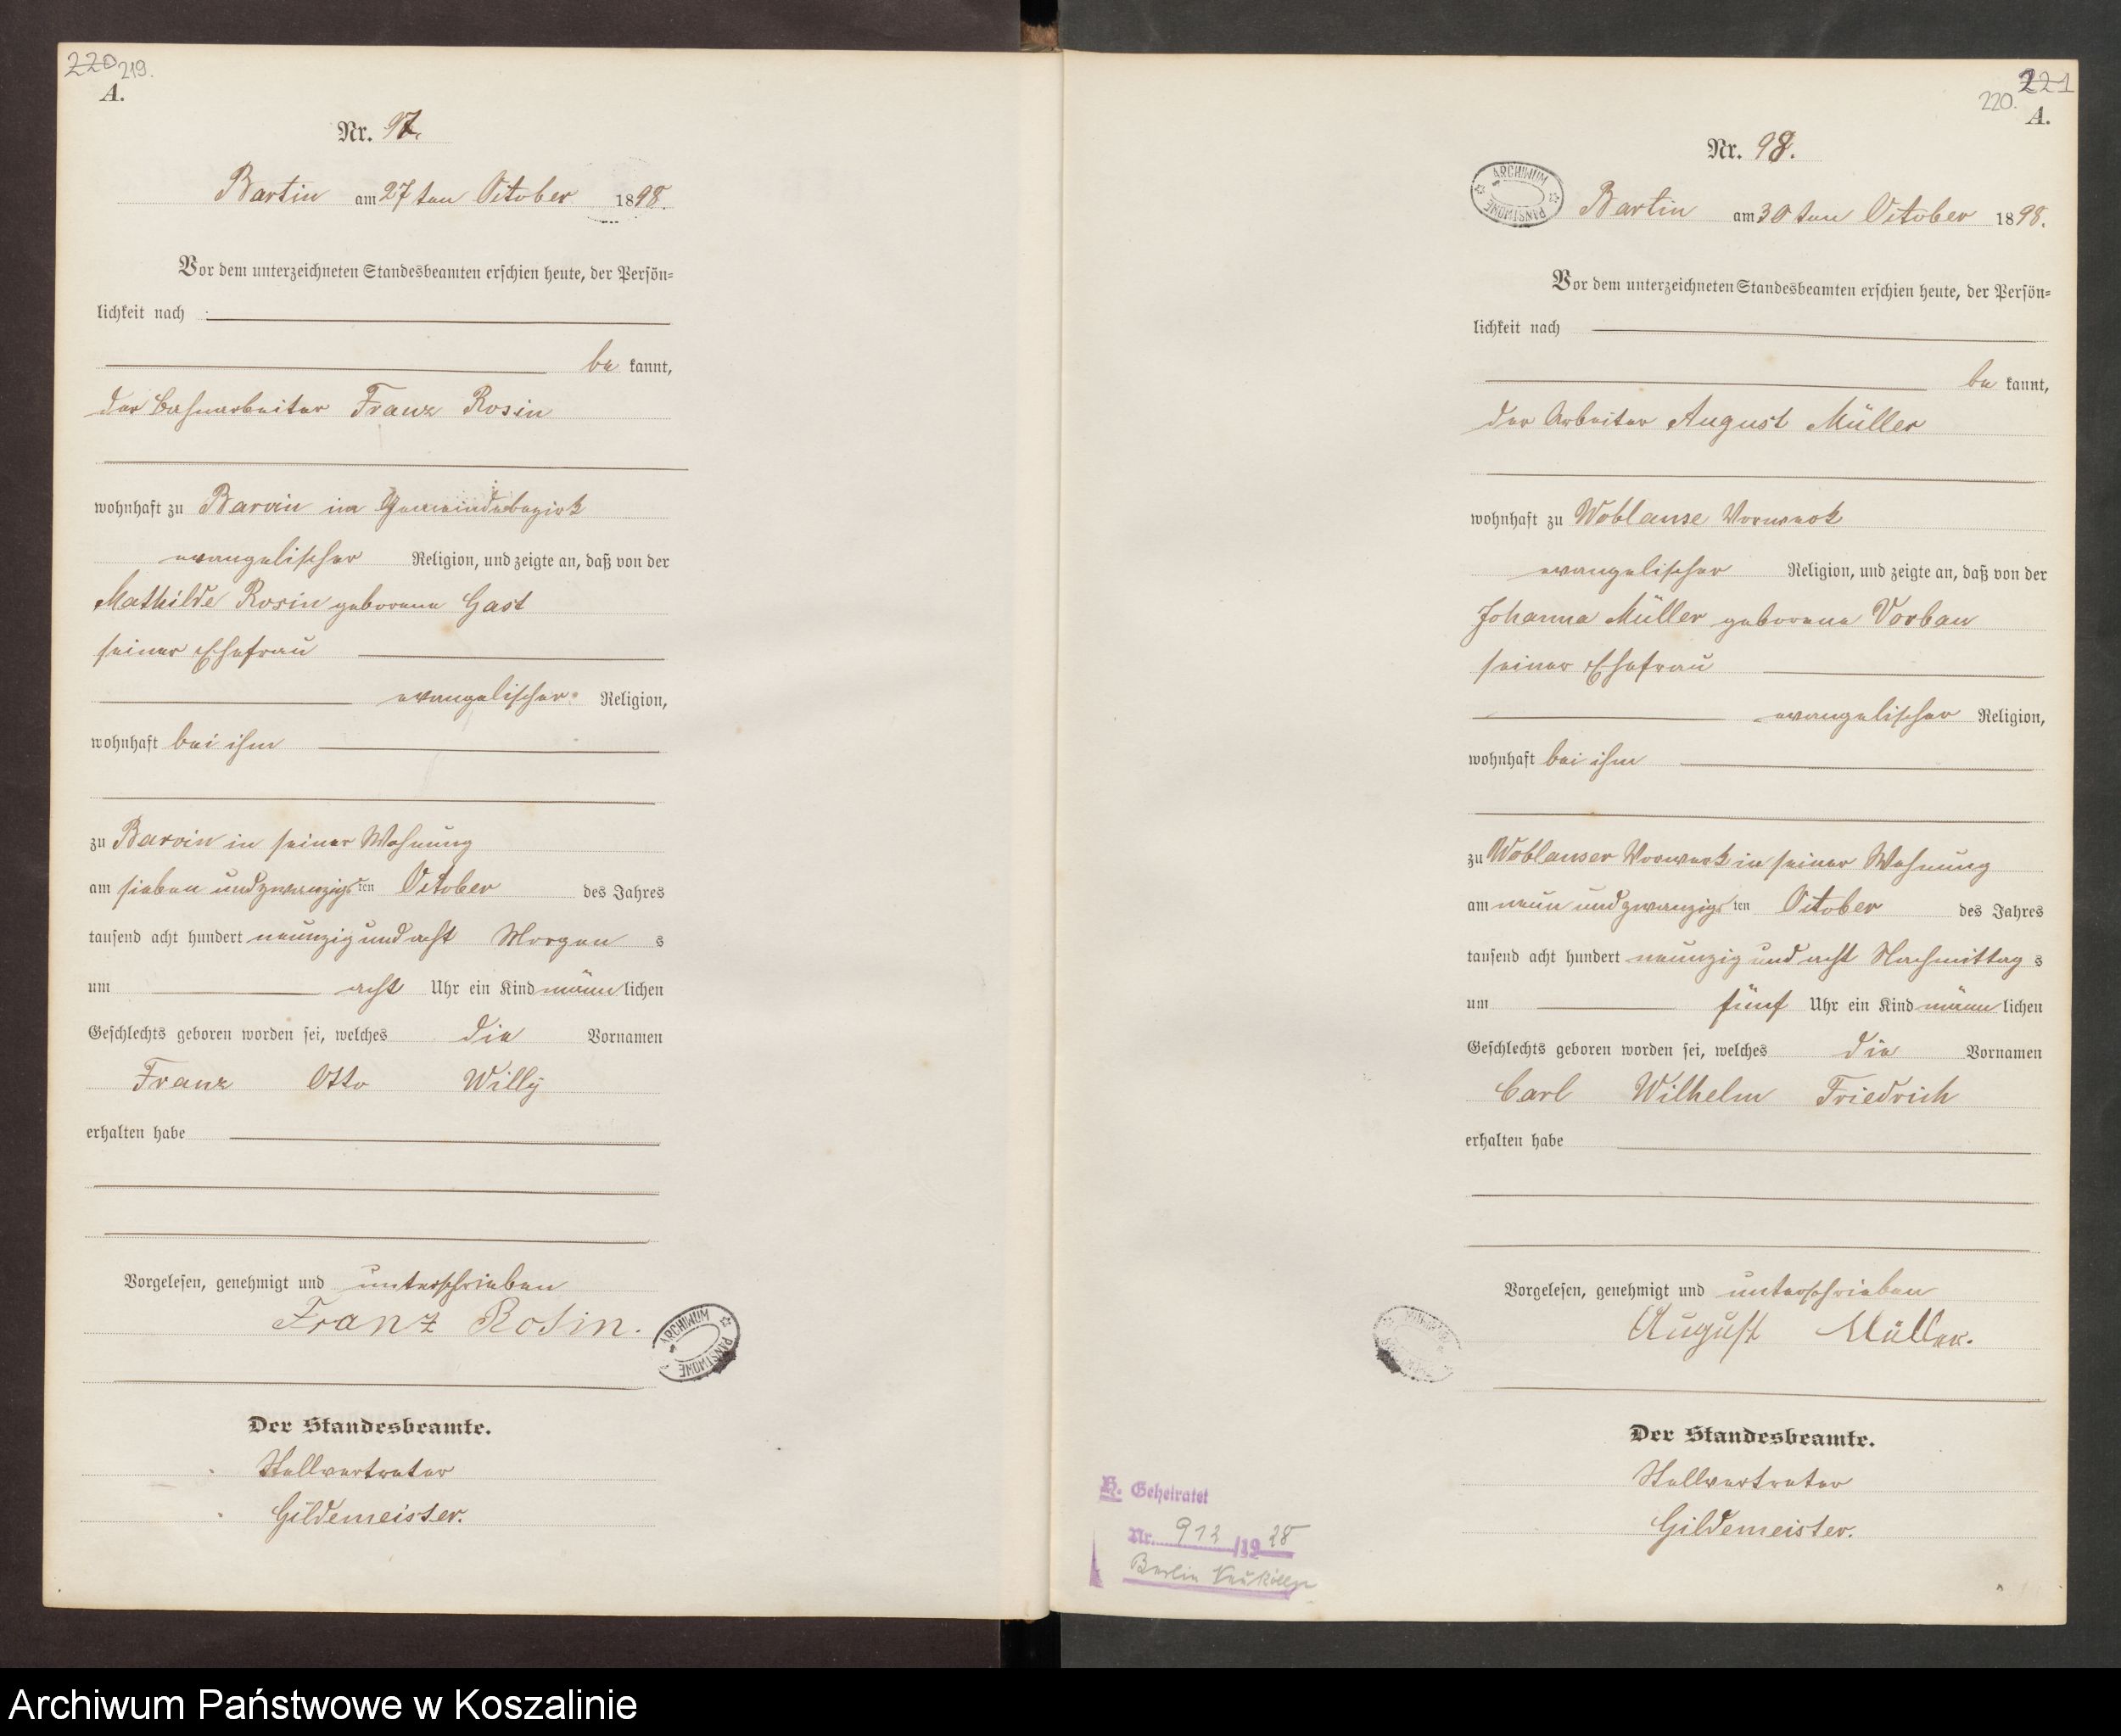 220 219.
A.
Nr. 97.
Bartin am 27ten October 1898.
Vor dem unterzeichneten Standesbeamten erschien heute, der Persön-
lichkeit nach
be kannt,
der Bahnarbeiter Franz Rosin
wohnhaft zu Barvin im Gemeindebezirk
evangelischer Religion, und zeigte an, daß von der
Mathilde Rosin geborene Gast
seiner Ehefrau
evangelischer Religion,
wohnhaft bei ihm
zu Barvin in seiner Wohnung
am sieben und zwanzigsten October des Jahres
tausend acht hundert neunzig und acht Morgen s
um acht Uhr ein Kind männlichen
Geschlechts geboren worden sei, welches die Vornamen
Franz Otto Willy
erhalten habe
Vorgelesen, genehmigt und unterschrieben
Franz Rosin.
ARCHIWUM PAŃSTWOWE
Der Standesbeamte.
Stellvertreter
Gildemeister.
221
220.
A.
Nr. 98.
ARCHIWUM PAŃSTWOWE
Bartin am 30ten October 1898.
Vor dem unterzeichneten Standesbeamten erschien heute, der Persön-
lichkeit nach
be kannt,
der Arbeiter August Müller
wohnhaft zu Woblanse Vorwerk
evangelischer Religion, und zeigte an, daß von der
Johanna Müller geborene Vorbau
seiner Ehefrau
evangelischer Religion,
wohnhaft bei ihm
zu Woblanser Vorwerk in seiner Wohnung
am neun und zwanzigsten October des Jahres
tausend acht hundert neunzig und acht Nachmittag s
um fünf Uhr ein Kind männlichen
Geschlechts geboren worden sei, welches die Vornamen
Carl Wilhelm Friedrich
erhalten habe
Vorgelesen, genehmigt und unterschrieben
August Müller.
Der Standesbeamte.
Stellvertreter
Gildemeister.
H. Geheiratet
Nr. 912/1928
Berlin Neukölln
Archiwum Państwowe w Koszalinie